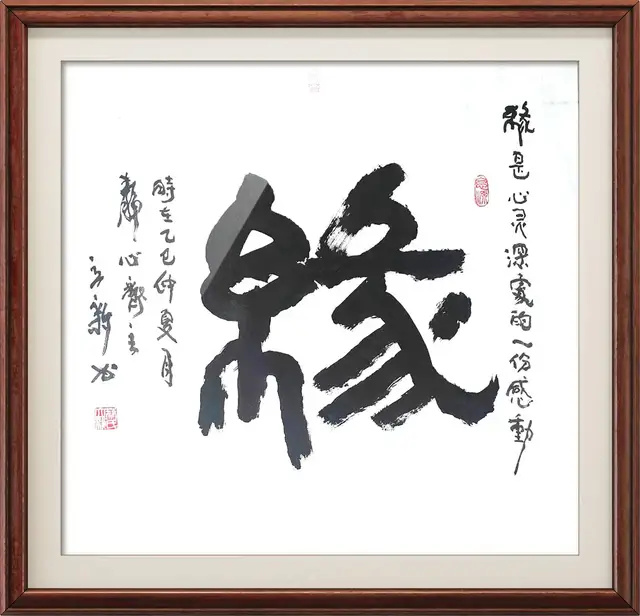 緣是心灵深處的一份感動
緣
時在乙巳仲夏月
靜心齋主
立新书